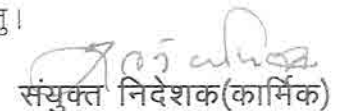 तु।
संयुक्त निदेशक(कार्मिक)